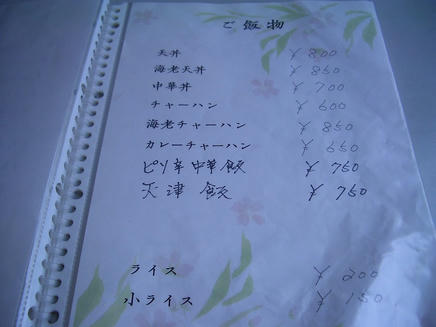 ご飯物
天丼 ¥800
海老天丼 ¥850
中華丼 ¥700
チャーハン ¥600
海老チャーハン ¥850
カレーチャーハン ¥650
ピリ辛中華飯 ¥750
天津飯 ¥750
ライス ¥200
小ライス ¥150